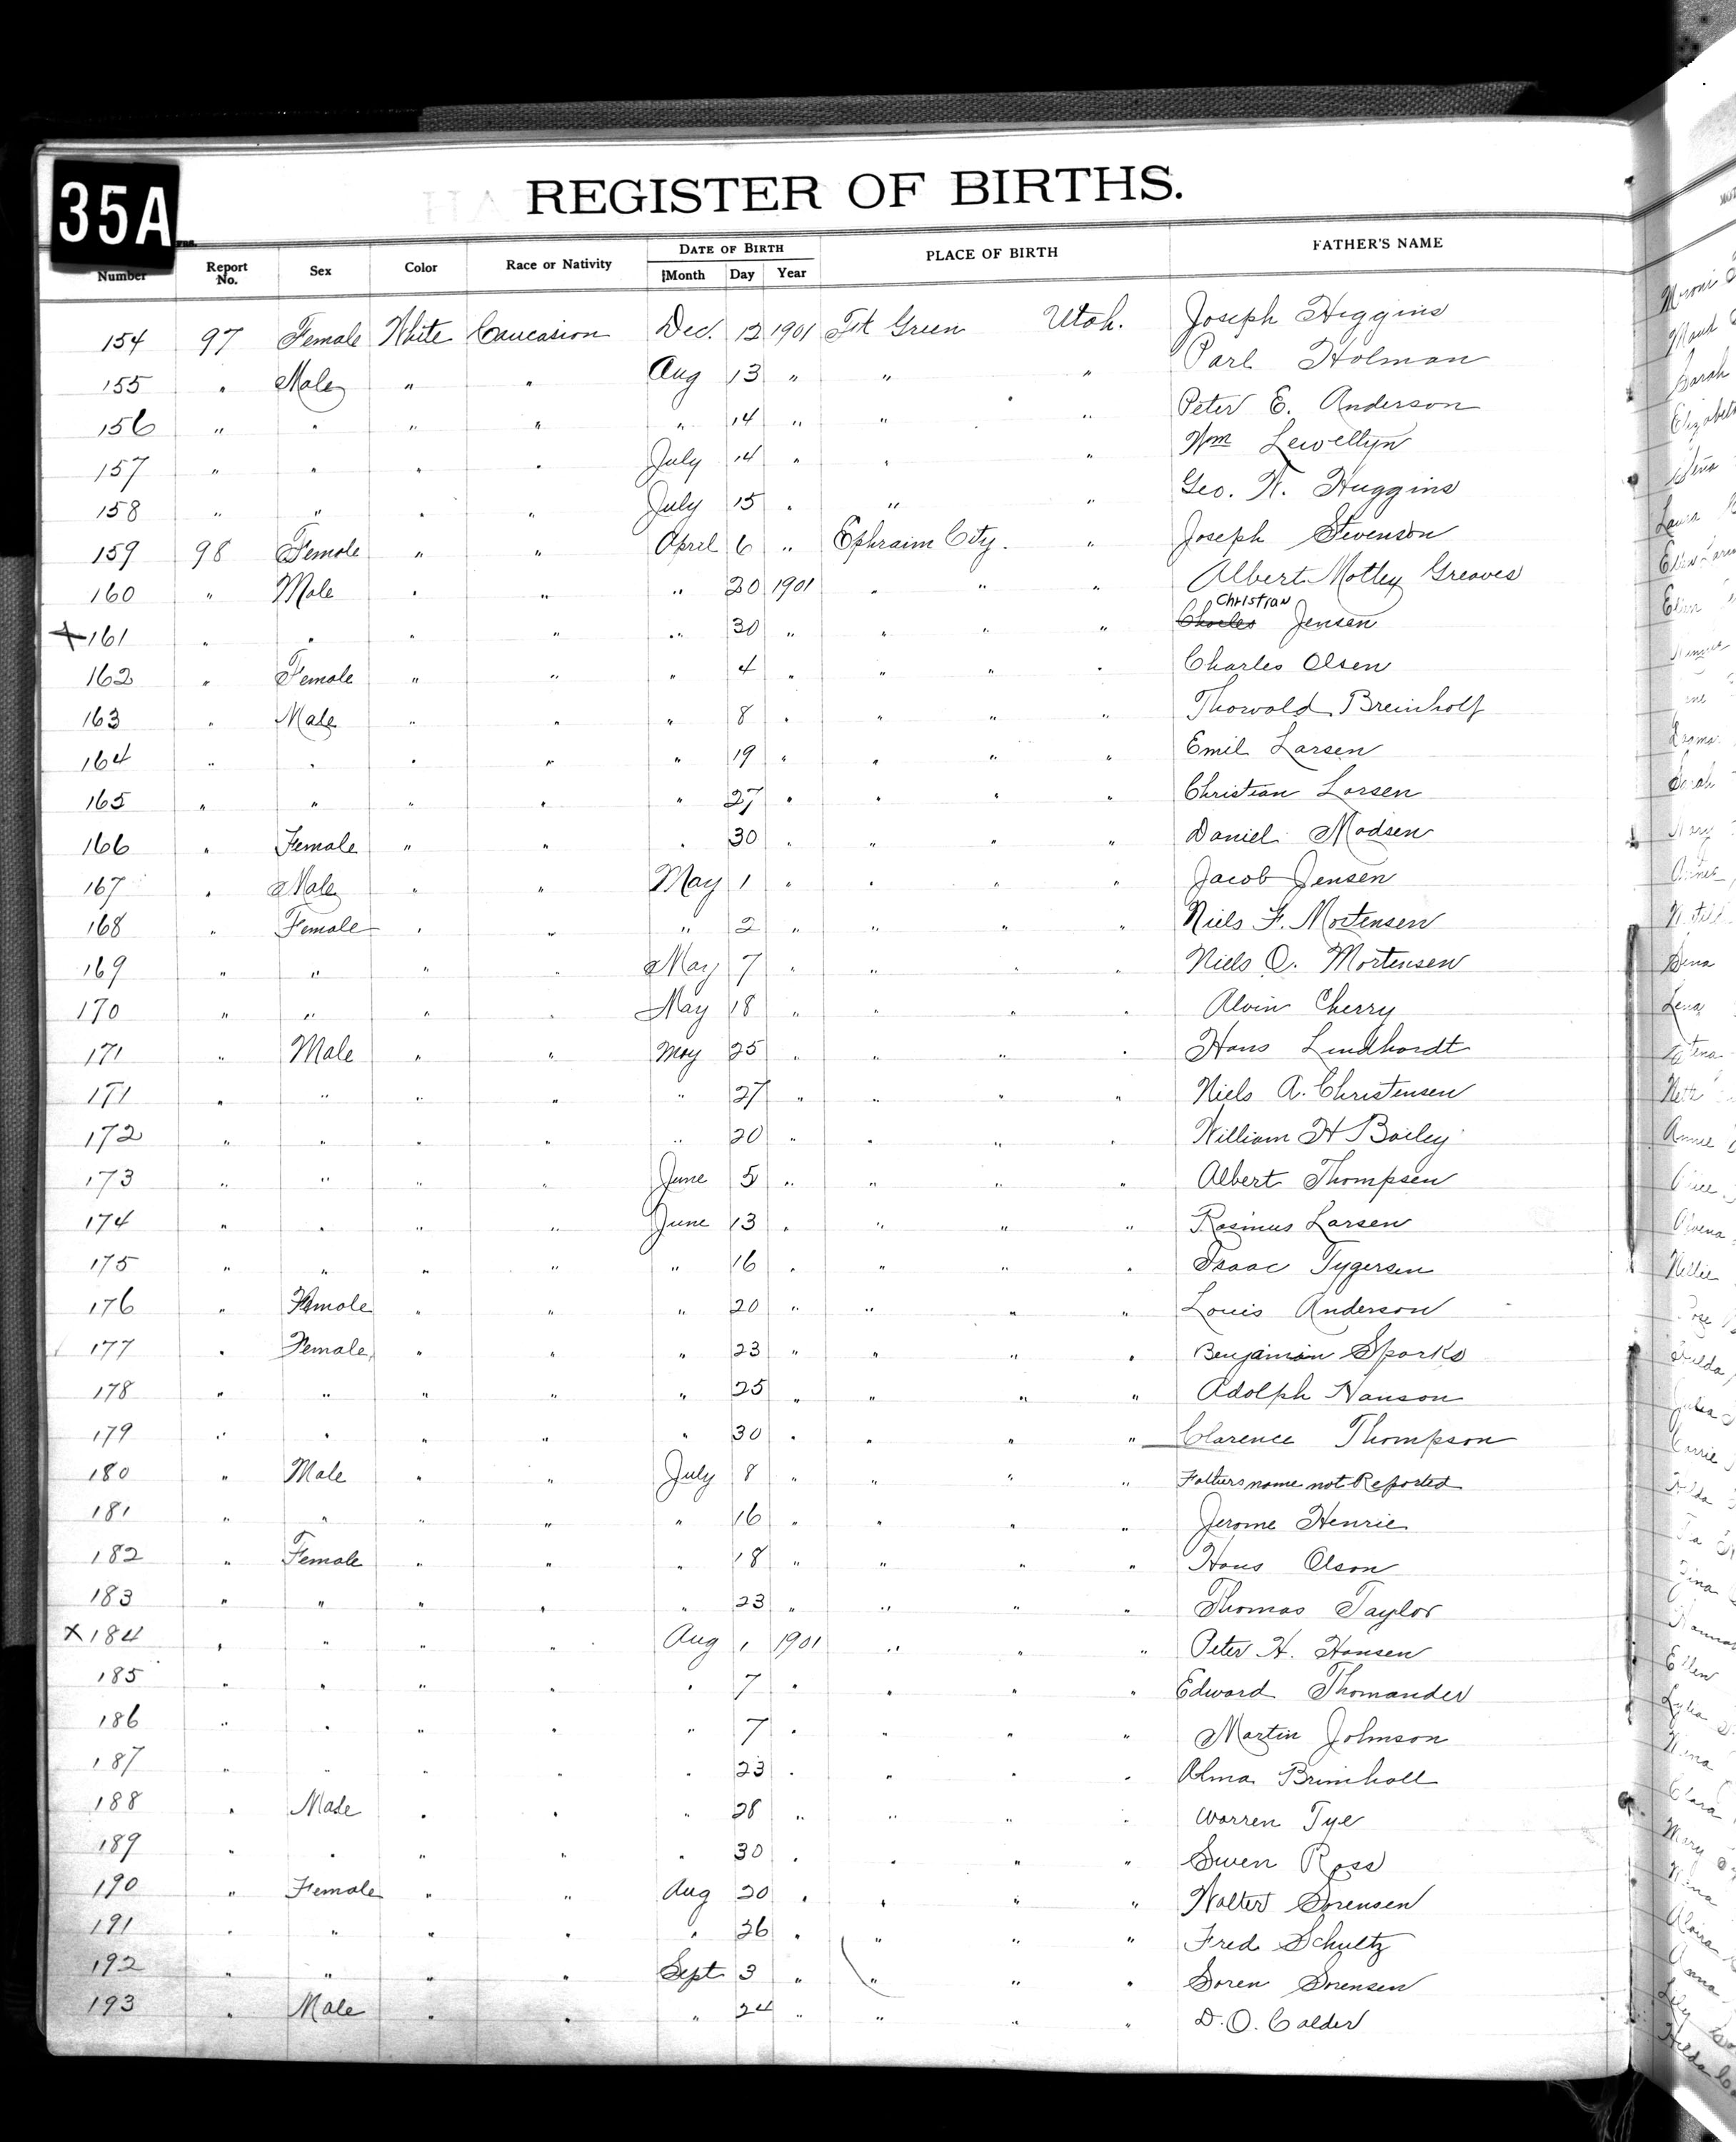 35A
REGISTER OF BIRTHS.
Number Report No. Sex Color Race or Nativity DATE OF BIRTH Month Day Year PLACE OF BIRTH FATHER'S NAME
154 97 Female White Caucasion Dec. 12 1901 Ft Green Utah. Joseph Higgins
155 " Male " " Aug 13 " " " Parl Holman
156 " " " " " 14 " " " Peter E. Anderson
157 " " " " July 14 " " " Wm Lewellyn
158 " " " " July 15 " " " Geo. W. Huggins
159 98 Female " " April 6 " Ephraim City. " Joseph Stevenson
160 " Male " " " 20 1901 " " " Albert Motley Greaves
X 161 " " " " " 30 " " " " Charles Christian Jensen
162 " Female " " " 4 " " " " Charles Olsen
163 " Male " " " 8 " " " " Thorvald Breinholt
164 " " " " " 19 " " " " Emil Larsen
165 " " " " " 27 " " " " Christian Larsen
166 " Female " " " 30 " " " " Daniel Madsen
167 " Male " " May 1 " " " " Jacob Jensen
168 " Female " " " 2 " " " " Niels F. Mortensen
169 " " " " May 7 " " " " Niels O. Mortensen
170 " " " " May 18 " " " " Alvin Cherry
171 " Male " " May 25 " " " " Hans Lindhardt
171 " " " " " 27 " " " " Niels A. Christensen
172 " " " " " 20 " " " " William H Bailey
173 " " " " June 5 " " " " Albert Thompsen
174 " " " " June 13 " " " " Rasmus Larsen
175 " " " " " 16 " " " " Isaac Tygersen
176 " Female " " " 20 " " " " Louis Anderson
177 " Female " " " 23 " " " " Benjamin Sparks
178 " " " " " 25 " " " " Adolph Hanson
179 " " " " " 30 " " " " Clarence Thompson
180 " Male " " July 8 " " " " Fathers name not Reported
181 " " " " " 16 " " " " Jerome Henrie
182 " Female " " " 18 " " " " Hans Olson
183 " " " " " 23 " " " " Thomas Taylor
X 184 " " " " Aug 1 1901 " " " Peter H. Hansen
185 " " " " " 7 " " " " Edward Thomander
186 " " " " " 7 " " " " Martin Johnson
187 " " " " " 23 " " " " Alma Brimhall
188 " Male " " " 28 " " " " Warren Tye
189 " " " " " 30 " " " " Swen Ross
190 " Female " " Aug 20 " " " " Walter Sorensen
191 " " " " " 26 " " " " Fred Schultz
192 " " " " Sept 3 " " " " Soren Sorensen
193 " Male " " " 24 " " " " D. O. Calder